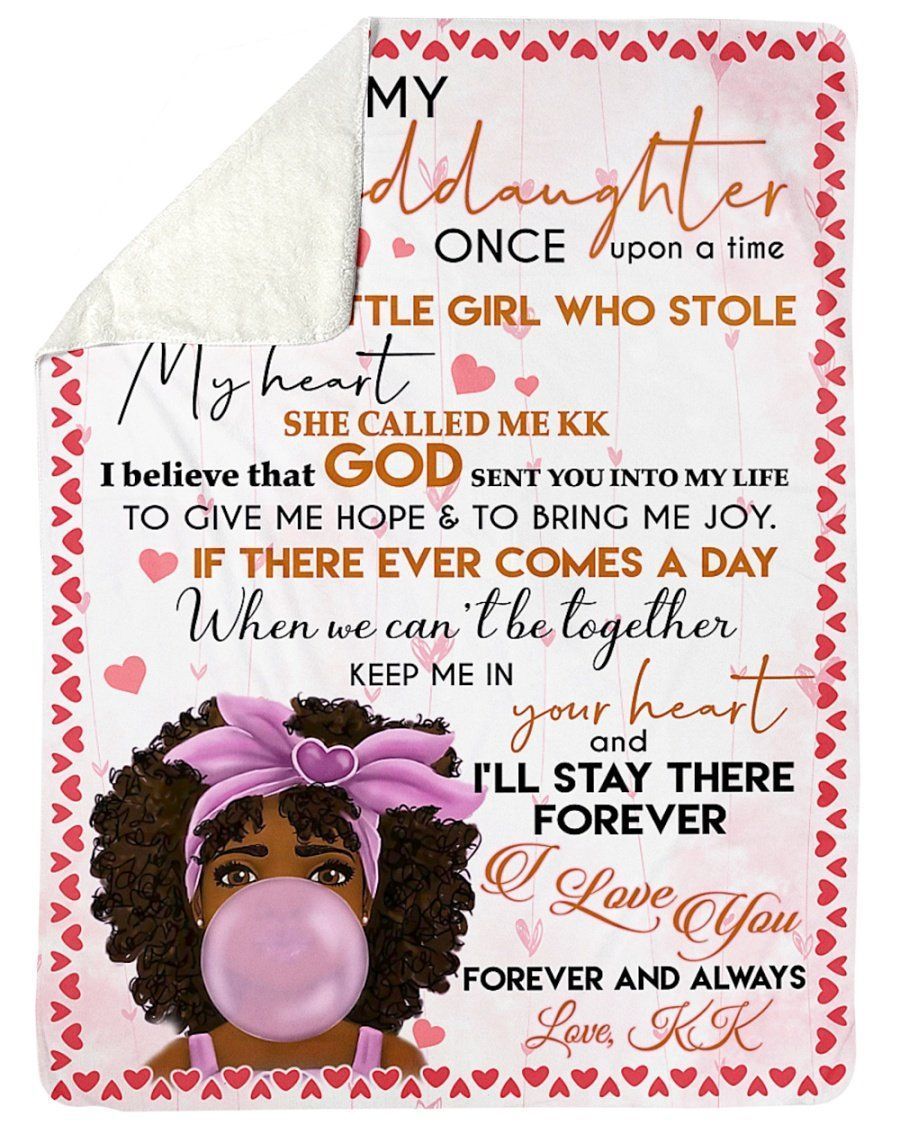 MY
ddaughter
ONCE upon a time
TTLE GIRL WHO STOLE
My heart
SHE CALLED ME KK
I believe that GOD SENT YOU INTO MY LIFE
TO GIVE ME HOPE & TO BRING ME JOY.
IF THERE EVER COMES A DAY
When we can't be together
KEEP ME IN
your heart
and
I'LL STAY THERE
FOREVER
I Love You
FOREVER AND ALWAYS
Love, KK